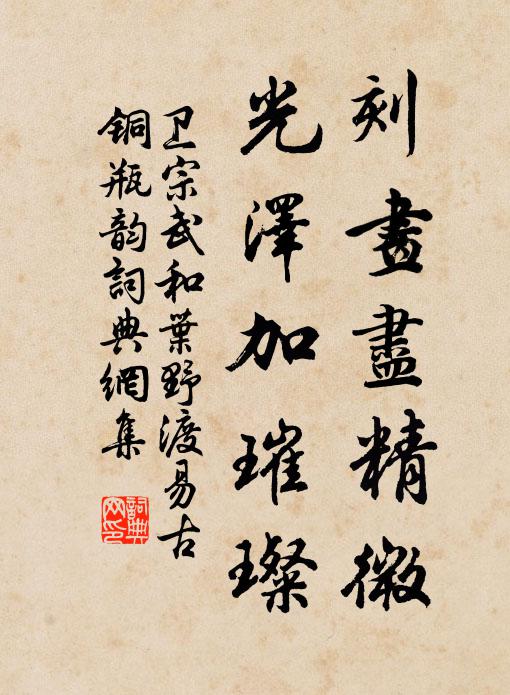 刻畫盡精微
光澤加璀璨
卫宗武和葉野渡易古
铜瓶韵詞典網集
詞典
网印